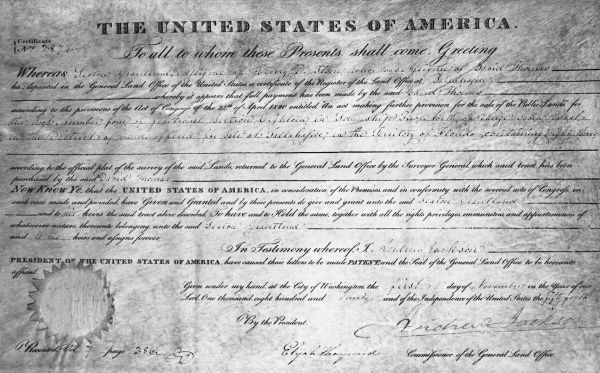 THE UNITED STATES OF AMERICA.
Certificate
No.
To all to whom these Presents shall come, Greeting
Whereas Seaton Grantland, assignee of Henry
has deposited in the General Land Office of the United States a certificate of the Register of the Land Office at Tallahassee
whereby it appears that full payment has been made by the said David Thomas
according to the provisions of the Act of Congress of the 24th of April 1820 entitled An act making further provision for the sale of the Public Lands for
the Lot number four of fractional section Eighteen in Township
in the District of Lands for sale at Tallahassee in the Territory of Florida, containing
according to the official plat of the survey of the said Lands, returned to the General Land Office by the Surveyor General, which said tract has been
purchased by the said David Thomas
NOW KNOW YE, that the UNITED STATES OF AMERICA, in consideration of the Premises, and in conformity with the several acts of Congress, in
such case made and provided, have Given and Granted and by these presents do give and grant unto the said Seaton Grantland
and to his heirs the said tract above described, To have and to Hold the same, together with all the rights, privileges, immunities, and appurtenances of
whatsoever nature, thereunto belonging, unto the said Seaton Grantland
and to his heirs and assigns forever
In Testimony whereof, I, Andrew Jackson
PRESIDENT OF THE UNITED STATES OF AMERICA, have caused these letters to be made PATENT, and the Seal of the General Land Office to be hereunto
affixed.
Given under my hand, at the City of Washington, the first day of November in the Year of our
Lord, One thousand, eight hundred and thirty and of the Independence of the United States the fifty fifth
By the President.
Andrew Jackson
Recorded Vol 7 page 286
Elijah Hayward
Commissioner of the General Land Office